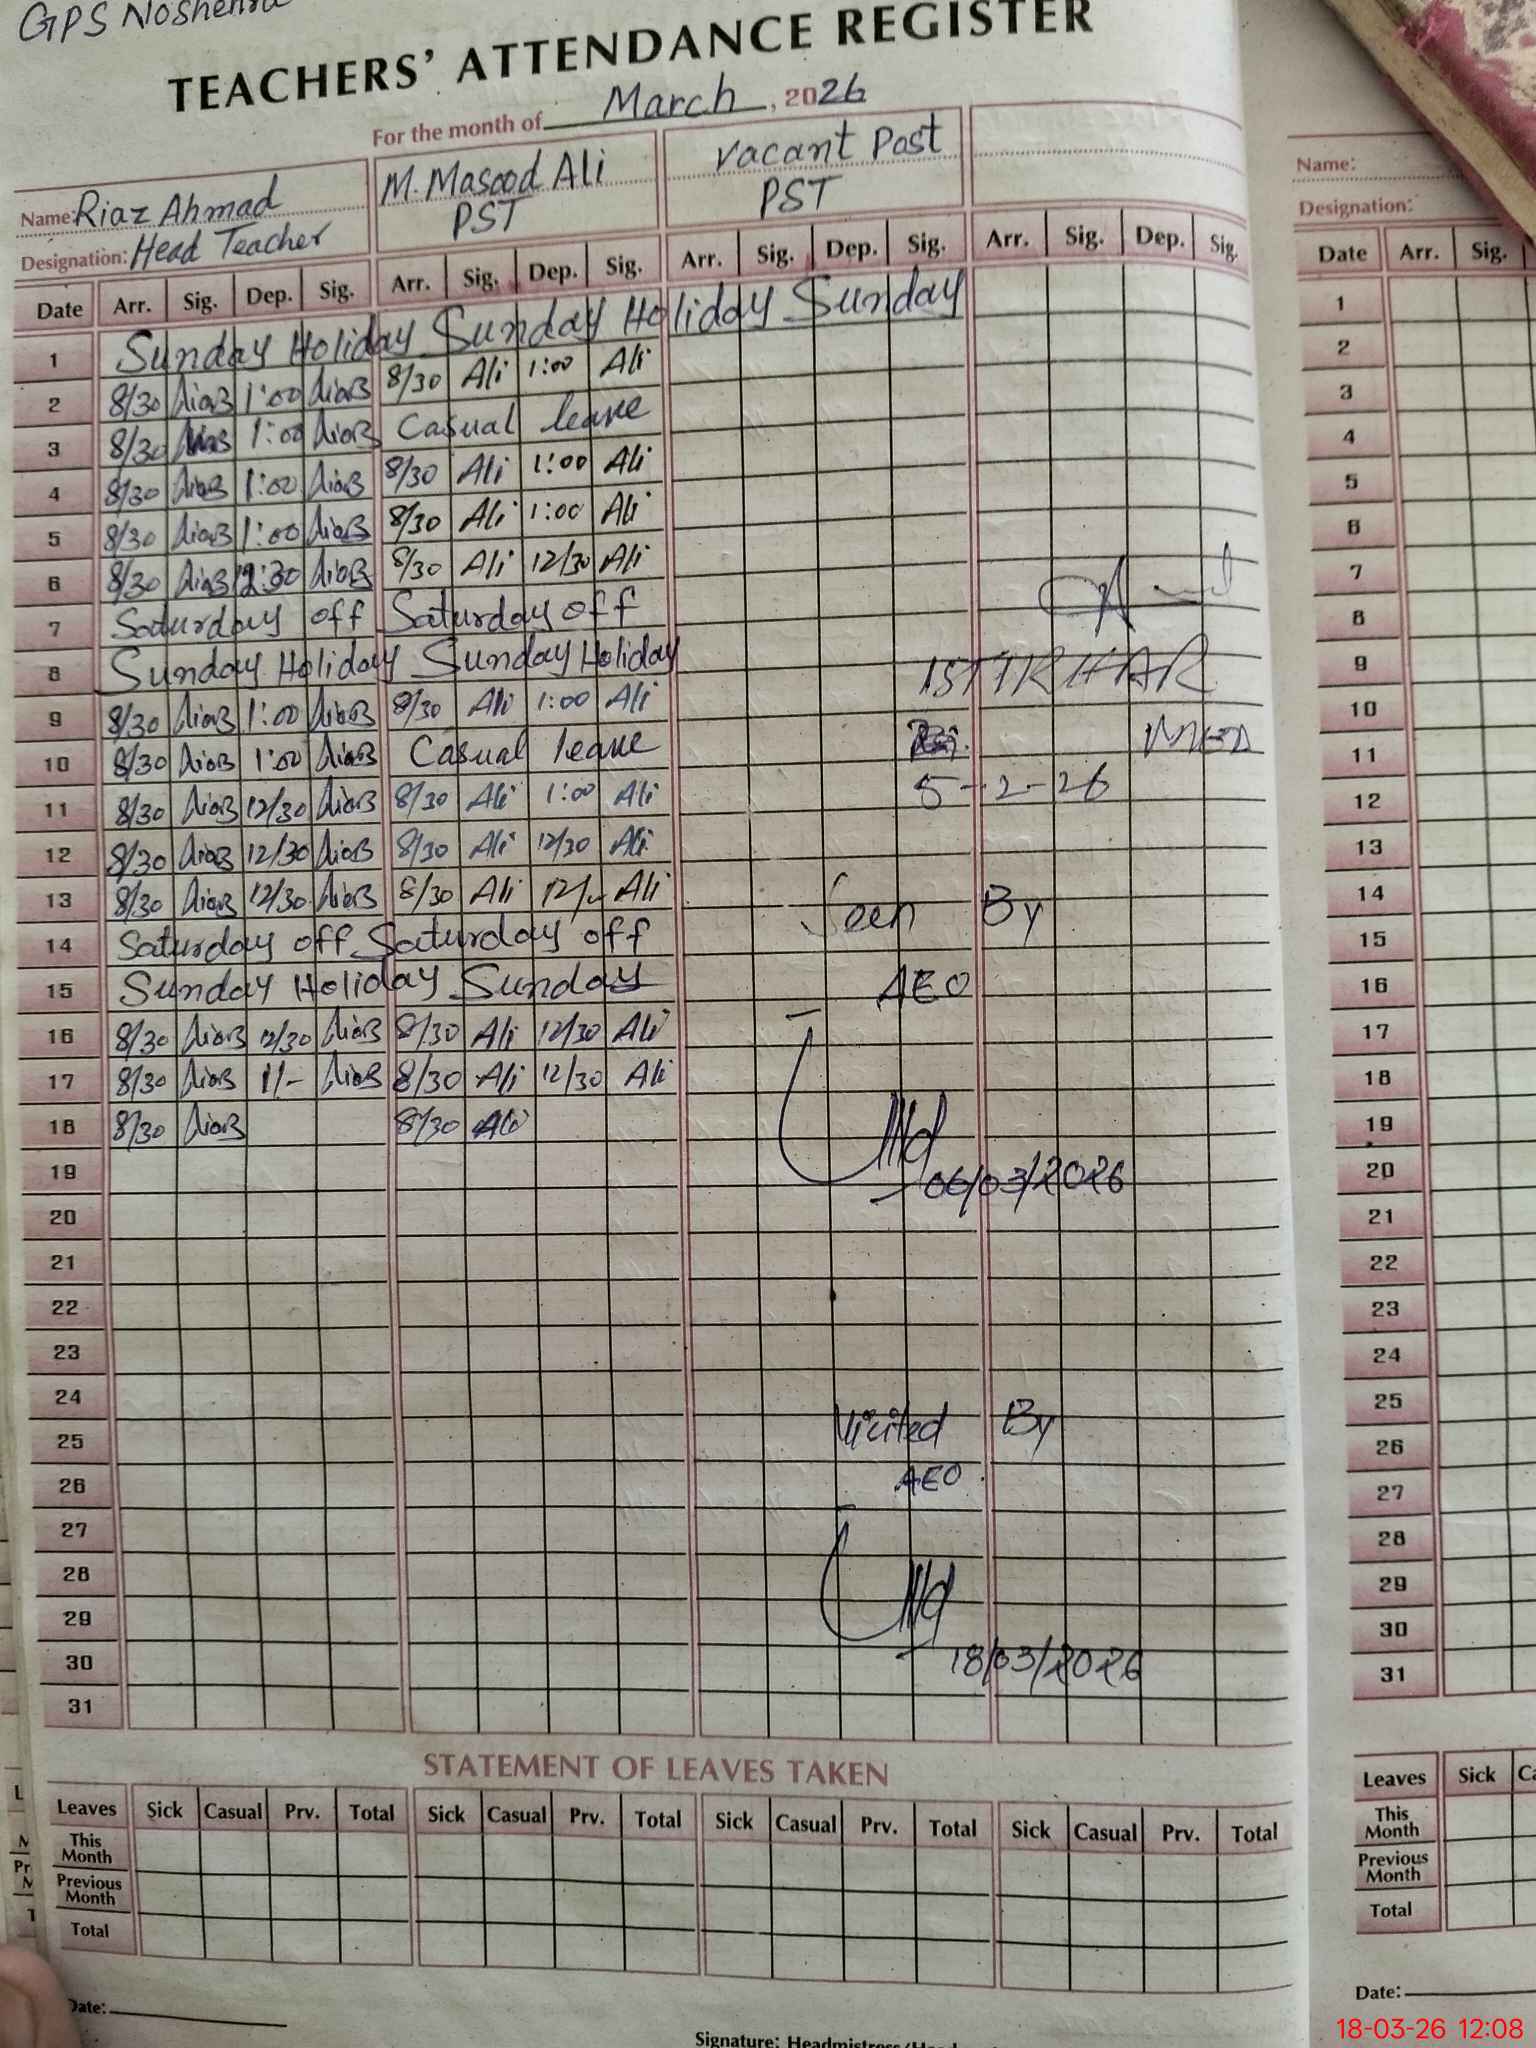 GPS Noshehra
TEACHERS' ATTENDANCE REGISTER
For the month of March, 2026
Name: Riaz Ahmad M. Masood Ali vacant Post
Designation: Head Teacher PST PST
Date Arr. Sig. Dep. Sig. Arr. Sig. Dep. Sig. Arr. Sig. Dep. Sig. Arr. Sig. Dep. Sig.
1 Sunday Holiday Sunday Holiday Sunday
2 8/30 1:00 8/30 Ali 1:00 Ali
3 8/30 1:00 Casual leave
4 8/30 1:00 8/30 Ali 1:00 Ali
5 8/30 1:00 8/30 Ali 1:00 Ali
6 8/30 12:30 8/30 Ali 12/30 Ali
7 Saturday off Saturday off
8 Sunday Holiday Sunday Holiday
9 8/30 1:00 8/30 Ali 1:00 Ali
10 8/30 1:00 Casual leave
11 8/30 12/30 8/30 Ali 1:00 Ali
5-2-26
12 8/30 12/30 8/30 Ali 12/30 Ali
13 8/30 12/30 8/30 Ali 12/- Ali
Seen By
14 Saturday off Saturday off
15 Sunday Holiday Sunday
AEO
16 8/30 12/30 8/30 Ali 12/30 Ali
17 8/30 1/- 8/30 Ali 12/30 Ali
18 8/30 8/30 Ali
19
06/03/2026
20
21
22
23
24
25
Visited By
26
AEO
27
28
29
30
18/03/2026
31
STATEMENT OF LEAVES TAKEN
Leaves Sick Casual Prv. Total Sick Casual Prv. Total Sick Casual Prv. Total Sick Casual Prv. Total
This Month
Previous Month
Total
Date:
Signature:
Name:
Designation:
Date Arr. Sig.
1
2
3
4
5
6
7
8
9
10
11
12
13
14
15
16
17
18
19
20
21
22
23
24
25
26
27
28
29
30
31
Leaves Sick
This Month
Previous Month
Total
Date:
18-03-26 12:08